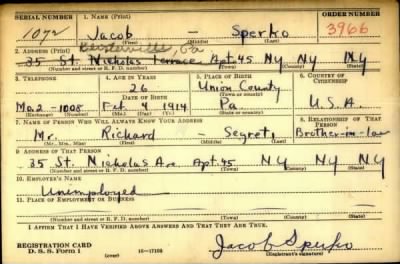 SERIAL NUMBER 1. NAME (Print) ORDER NUMBER
1072 Jacob – Sperko 3966
(First) (Middle) (Last)
2. ADDRESS (Print)
35 St. Nicholas Terrace Apt 45 NY NY NY
(Number and street or R. F. D. number) (Town) (County) (State)
3. TELEPHONE 4. AGE IN YEARS 5. PLACE OF BIRTH 6. COUNTRY OF CITIZENSHIP
26 Union County
DATE OF BIRTH
Mo2-1008 Feb 4 1914 Pa U.S.A.
(Exchange) (Number) (Mo.) (Day) (Yr.) (State or country)
7. NAME OF PERSON WHO WILL ALWAYS KNOW YOUR ADDRESS 8. RELATIONSHIP OF THAT PERSON
Mr. Richard – Segreti Brother-in-law
(Mr., Mrs., Miss) (First) (Middle) (Last)
9. ADDRESS OF THAT PERSON
35 St. Nicholas Ave. Apt. 45 NY NY NY
(Number and street or R. F. D. number) (Town) (County) (State)
10. EMPLOYER'S NAME
Unemployed
11. PLACE OF EMPLOYMENT OR BUSINESS
(Number and street or R. F. D. number) (Town) (County) (State)
I AFFIRM THAT I HAVE VERIFIED ABOVE ANSWERS AND THAT THEY ARE TRUE.
REGISTRATION CARD
D. S. S. Form 1 (over) 16—17105 Jacob Sperko
(Registrant's signature)